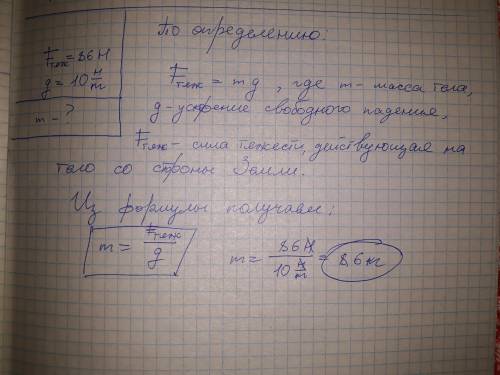 Fтяж = 86 Н
g = 10 Н/м
m - ?
По определению:
Fтяж = mg, где m - масса тела,
g - ускрение свободного паденья,
Fтяж - сила тяжести, действующая на
тело со строны Земли.
Из формулы получаем:
m = Fтяж/g
m = 86 Н/10 Н/м = 86 кг